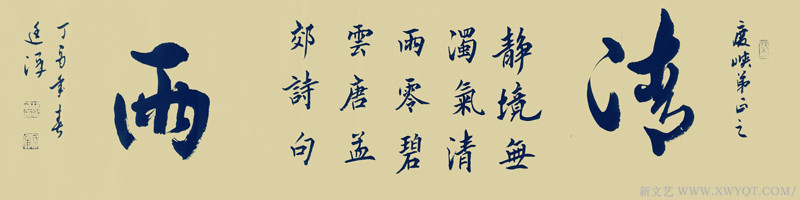 峡弟正之
清
靜境無
濁氣清
雨零碧
雲唐孟
郊詩句
雨
丁酉年春
廷
新文艺 WWW.XWYQT.COM/